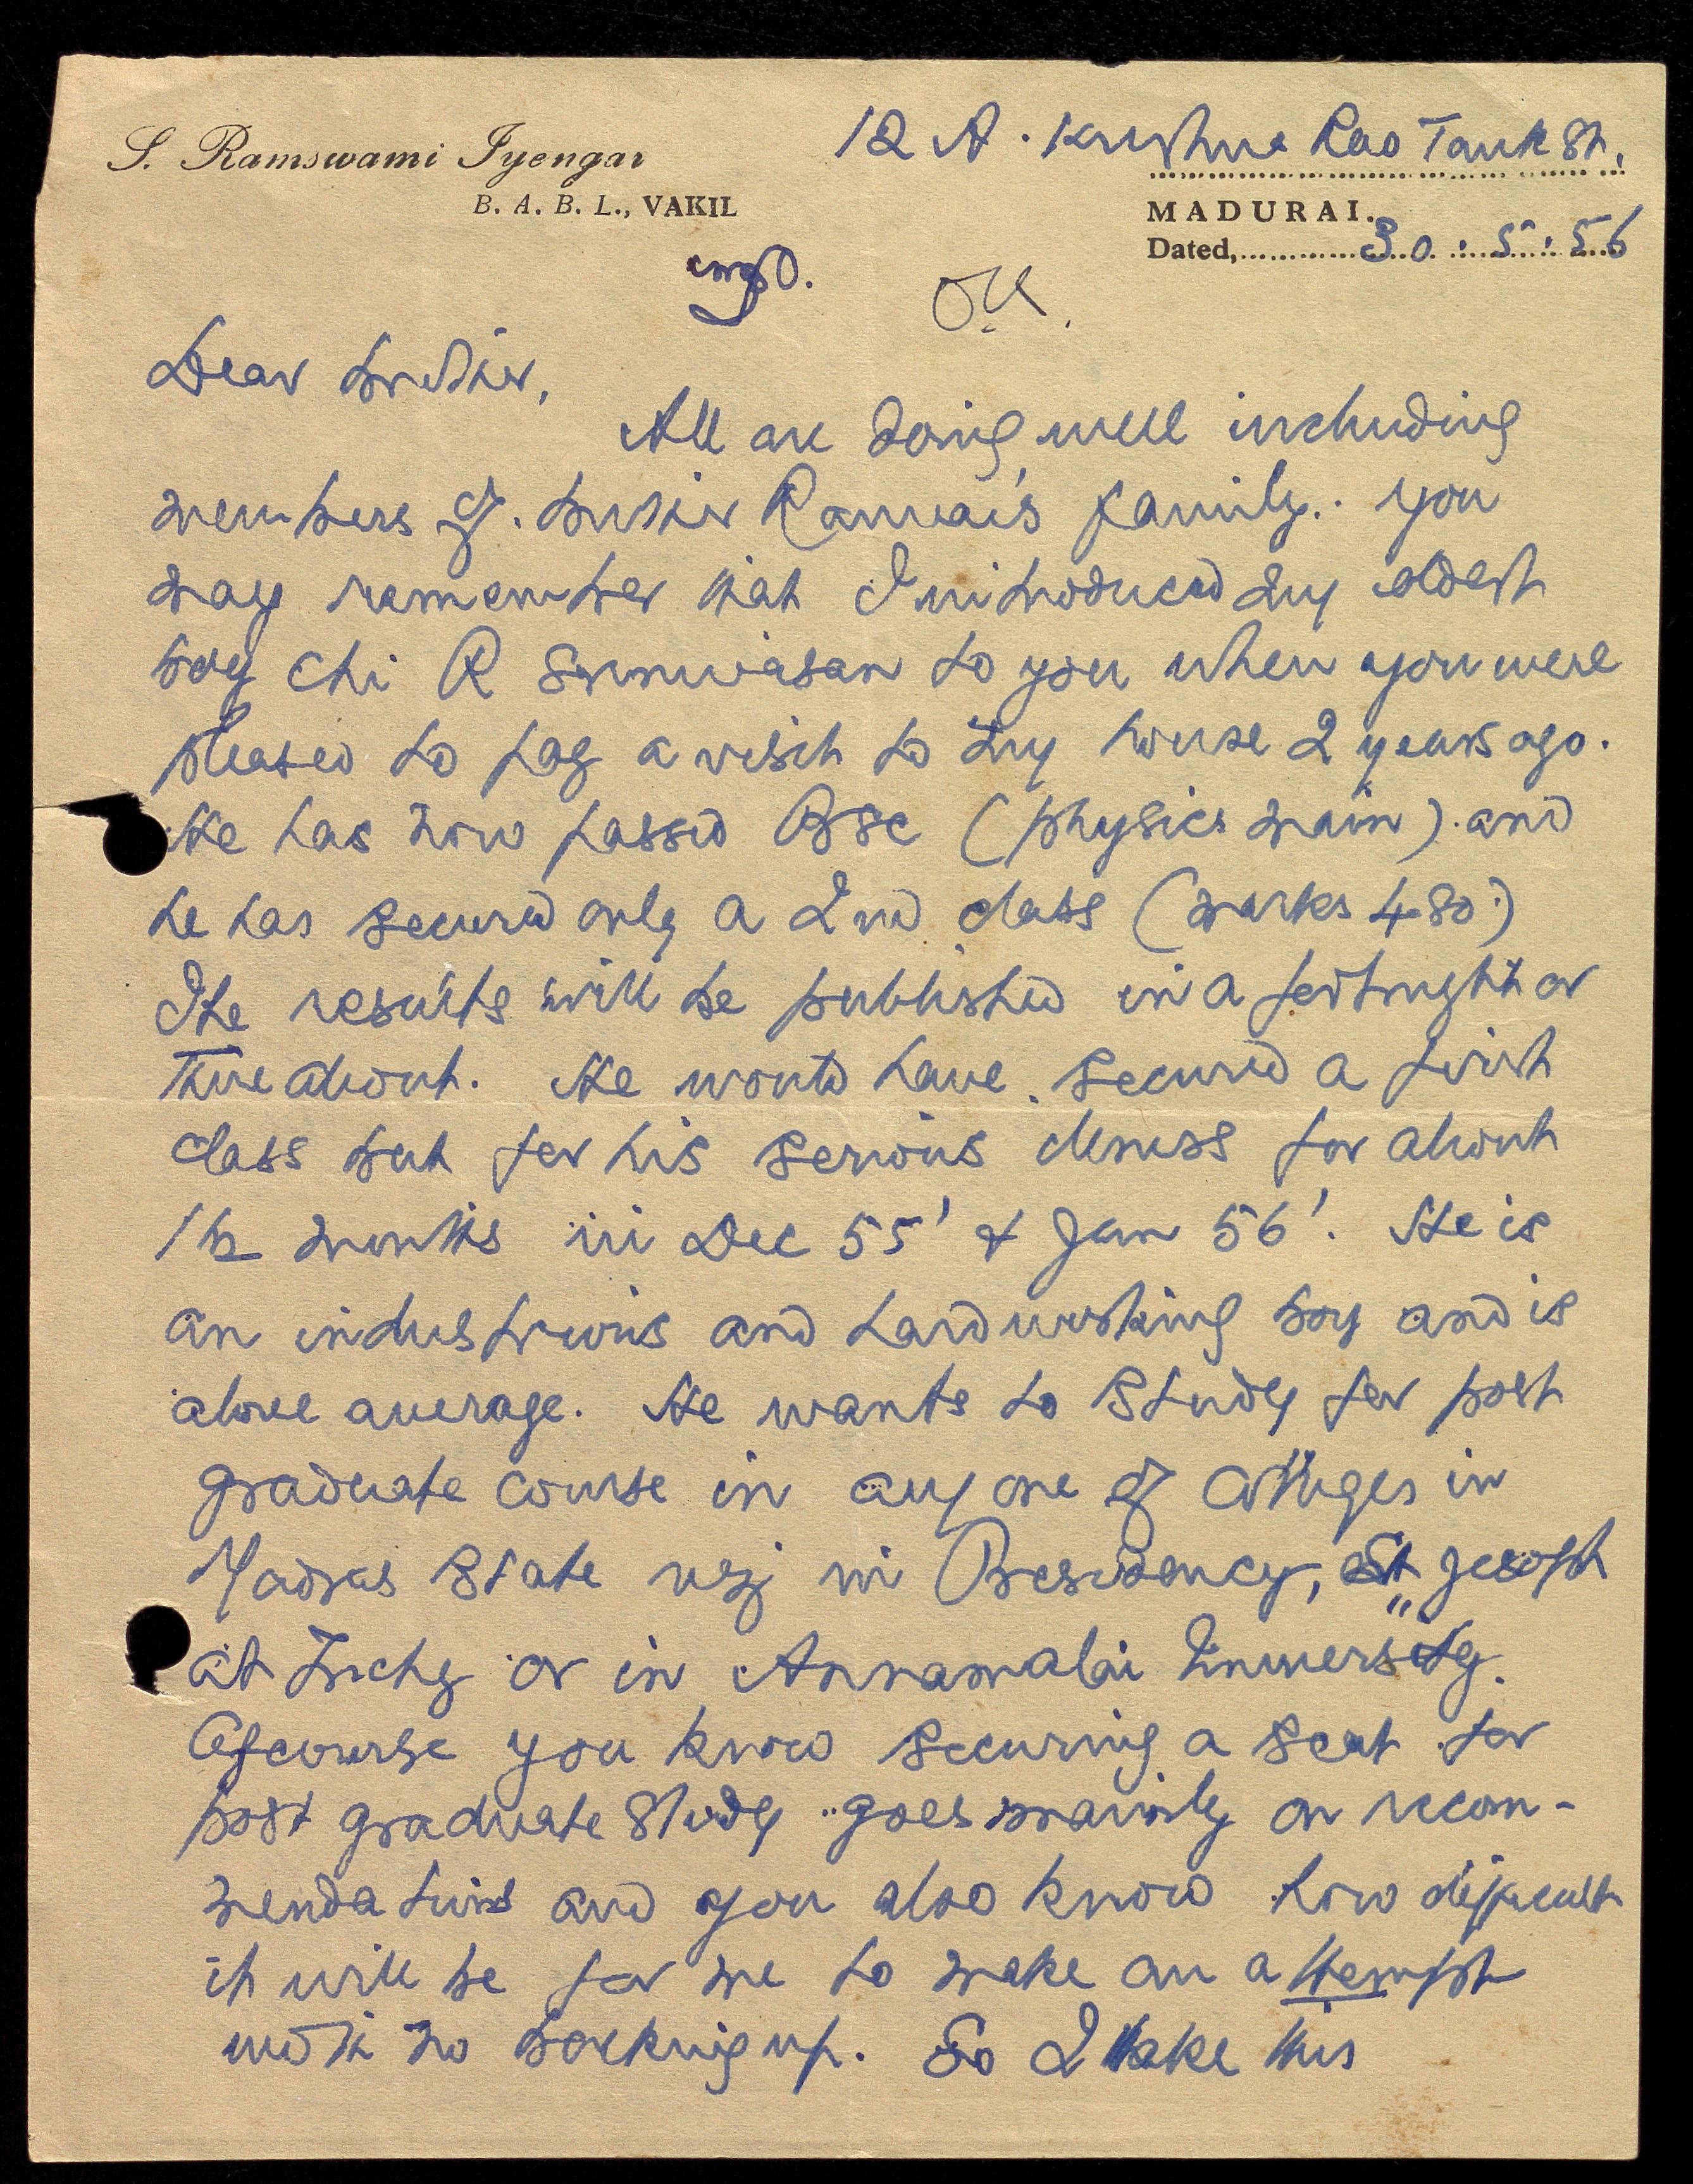 S. Ramswami Iyengar
B. A. B. L., VAKIL
12 A. Krishna Rao Tank St,
MADURAI.
Dated, 30 : 5 : 56
Ok.
Dear brother,
All are doing well including
members of brother Ramvai's family. You
may remember that I introduced my eldest
boy Chi R Srinivasan to you when you were
pleased to pay a visit to my house 2 years ago.
He has now passed BSc (physics main) and
he has secured only a 2nd class (marks 480)
The results will be published in a fortnight or
there about. He would have secured a first
class but for his serious illness for about
1½ months in Dec 55' & Jan 56'. He is
an industrious and hard working boy and is
above average. He wants to study for post
graduate course in any one of colleges in
Madras State viz in Presidency, St Joseph
at Trichy or in Annamalai University.
Ofcourse you know securing a seat for
post graduate study goes mainly on recom-
mendations and you also know how difficult
it will be for me to make an attempt
with no backing up. So I take this